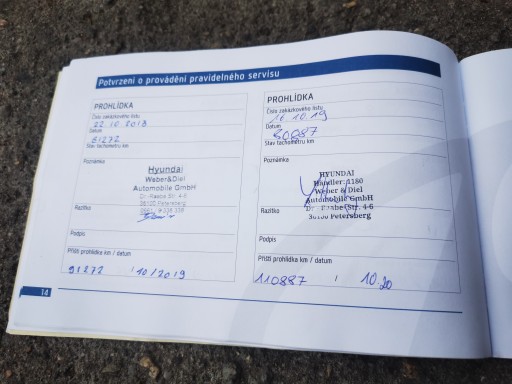 Potvrzení o provádění pravidelného servisu
PROHLÍDKA
Číslo zakázkového listu
22.10.2018
Datum
81272
Stav tachometru km
Poznámka
Hyundai
Weber&Diel
Automobile GmbH
Dr. Raabe Str. 4-6
36100 Petersberg
Razítko
Podpis
Příští prohlídka km / datum
91272 / 10/2019
PROHLÍDKA
Číslo zakázkového listu
16.10.19
Datum
Stav tachometru km
Poznámka
HYUNDAI
Händler: 1180
Weber & Diel
Automobile GmbH
Dr.-Raabe-Str. 4-6
36100 Petersberg
Razítko
Podpis
Příští prohlídka km / datum
110887 / 10.20
14